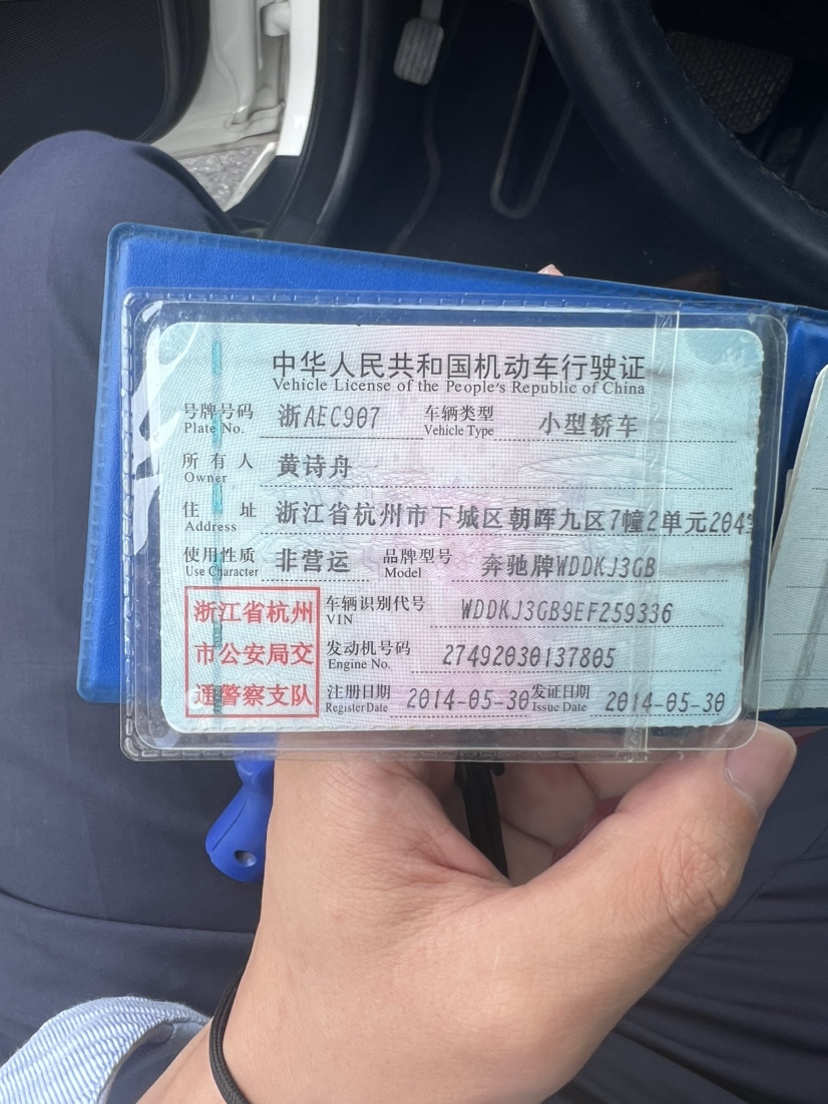 中华人民共和国机动车行驶证
Vehicle License of the People's Republic of China
号牌号码 浙AEC907 车辆类型 小型轿车
Plate No. Vehicle Type
所有人 黄诗舟
Owner
住址 浙江省杭州市下城区朝晖九区7幢2单元204
Address
使用性质 非营运 品牌型号 奔驰牌WDDKJ3GB
Use Character Model
浙江省杭州 车辆识别代号 WDDKJ3GB9EF259336
VIN
市公安局交 发动机号码 27492030137805
Engine No.
通警察支队 注册日期 2014-05-30 发证日期 2014-05-30
Register Date Issue Date